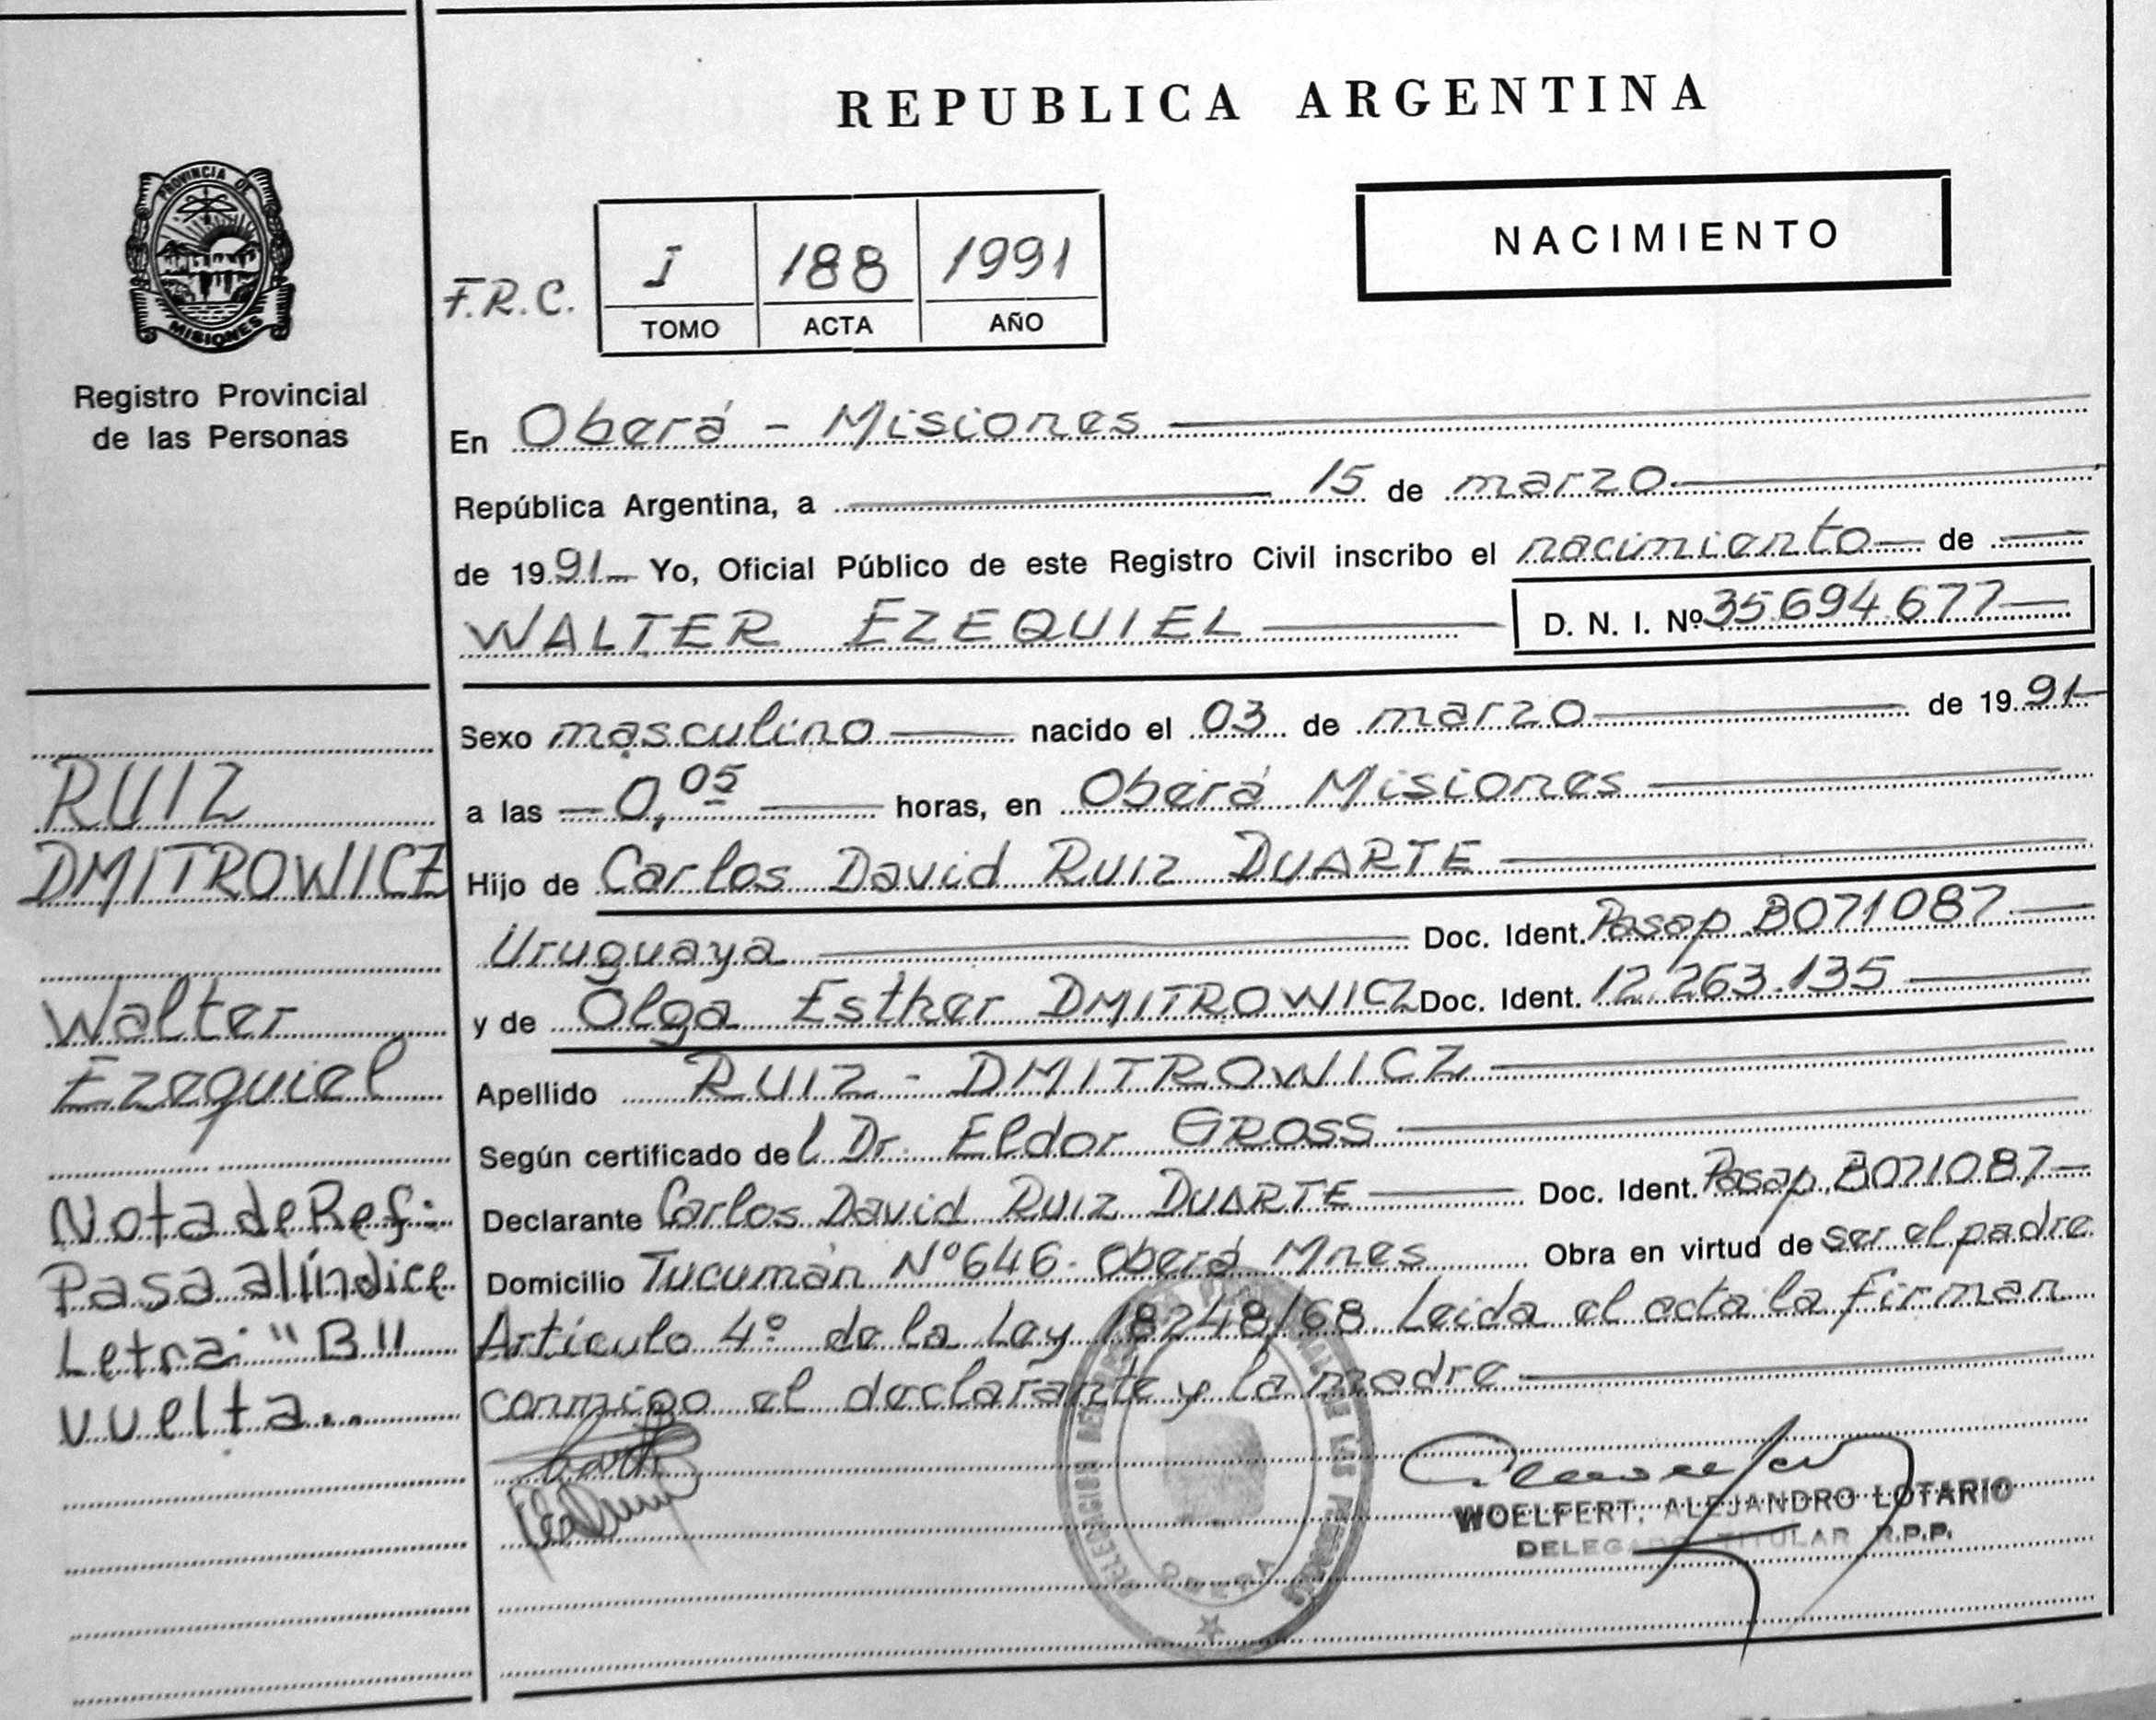 REPUBLICA ARGENTINA
PROVINCIA DE
MISIONES
Registro Provincial
de las Personas
NACIMIENTO
F.R.C.
I 188 1991
TOMO ACTA AÑO
En Oberá - Misiones
República Argentina, a 15 de marzo
de 1991 Yo, Oficial Público de este Registro Civil inscribo el nacimiento de
WALTER EZEQUIEL D. N. I. Nº 35.694.677
Sexo masculino nacido el 03 de marzo de 1991
a las 0,05 horas, en Oberá Misiones
Hijo de Carlos David Ruiz DUARTE
Uruguaya Doc. Ident. Pasap B071087
y de Olga Esther DMITROWICZ Doc. Ident. 12.263.135
Apellido RUIZ - DMITROWICZ
Según certificado del Dr. Eldor GROSS
Declarante Carlos David Ruiz DUARTE Doc. Ident. Pasap B071087
Domicilio Tucumán Nº 646 - Oberá Mnes Obra en virtud de ser el padre
Artículo 4º de la Ley 18248/68 Leida el acta la firman
conmigo el declarante y la madre
WOELFERT, ALEJANDRO LOTARIO
DELEGADO TITULAR R.P.P.
DE LAS PERSONAS
OBERA
RUIZ
DMITROWICZ
Walter
Ezequiel
Nota de Ref:
Pasa al índice
Letra: "B"
vuelta..